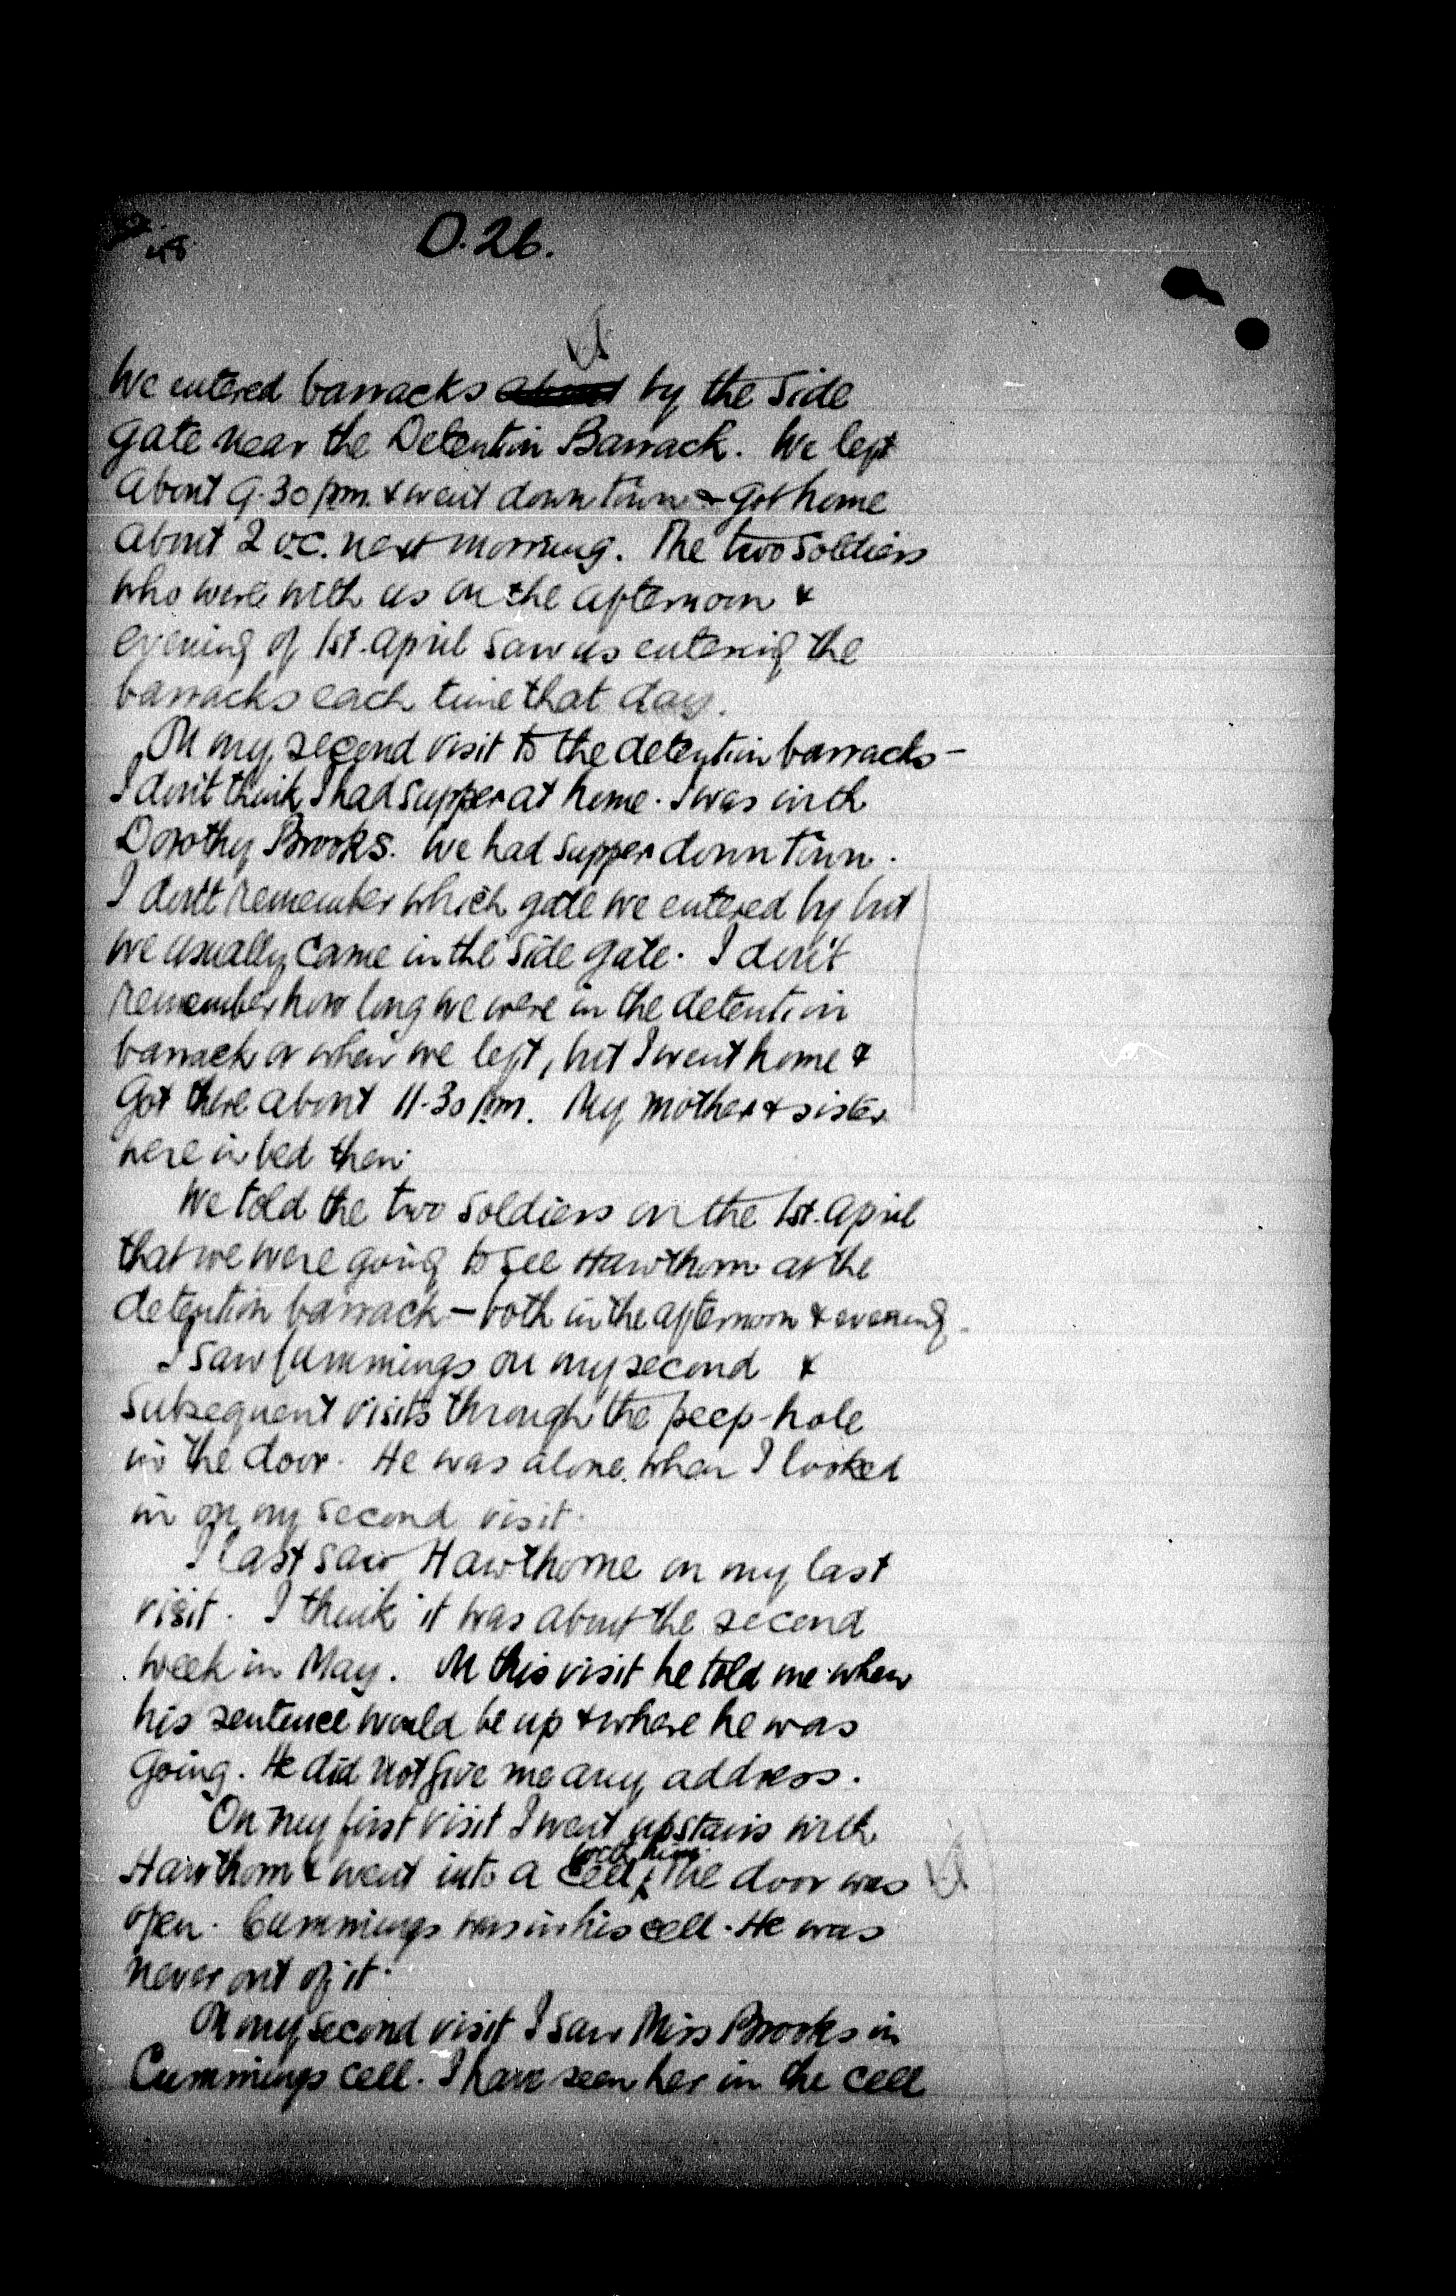 D.26.
We entered barracks by the side
gate near the Detention Barrack. We left
about 9.30 pm. & went down town & got home
about 2 o.c. next morning. The two soldiers
who were with us on the afternoon &
evening of 1st. April saw us entering the
barracks each time that day.
On my second visit to the detention barracks -
I don't think I had supper at home. I was with
Dorothy Brooks. We had supper down town.
I don't remember which gate we entered by but
we usually came in the side gate. I don't
remember how long we were in the detention
barrack or when we left, but I went home &
got there about 11.30 pm. My mother & sister
were in bed then.
We told the two soldiers on the 1st. April
that we were going to see Hawthorn at the
detention barrack - both in the afternoon & evening.
I saw Cummings on my second &
subsequent visits through the peep-hole
in the door. He was alone when I looked
in on my second visit.
I last saw Hawthorne on my last
visit. I think it was about the second
week in May. On this visit he told me when
his sentence would be up & where he was
going. He did not give me any address.
On my first visit I went upstairs with
with him.
Hawthorn & went into a cell, the door was
open. Cummings was in his cell. He was
never out of it.
On my second visit I saw Miss Brooks in
Cummings cell. I have seen her in the cell